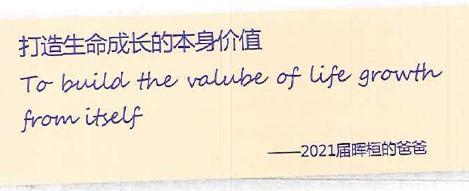 打造生命成长的本身价值
To build the valube of life growth
from itself
——2021届晖桓的爸爸